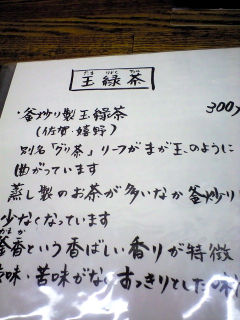 たま りょく ちゃ
玉緑茶
・釜炒り製玉緑茶 300
(佐賀・嬉野)
別名「グリ茶」リーフがまが玉のように
曲がっています
蒸し製のお茶が多いなか釜炒り
少なくなっています
かまか
釜香という香ばしい香りが特徴
味・苦味がないすっきりとした味